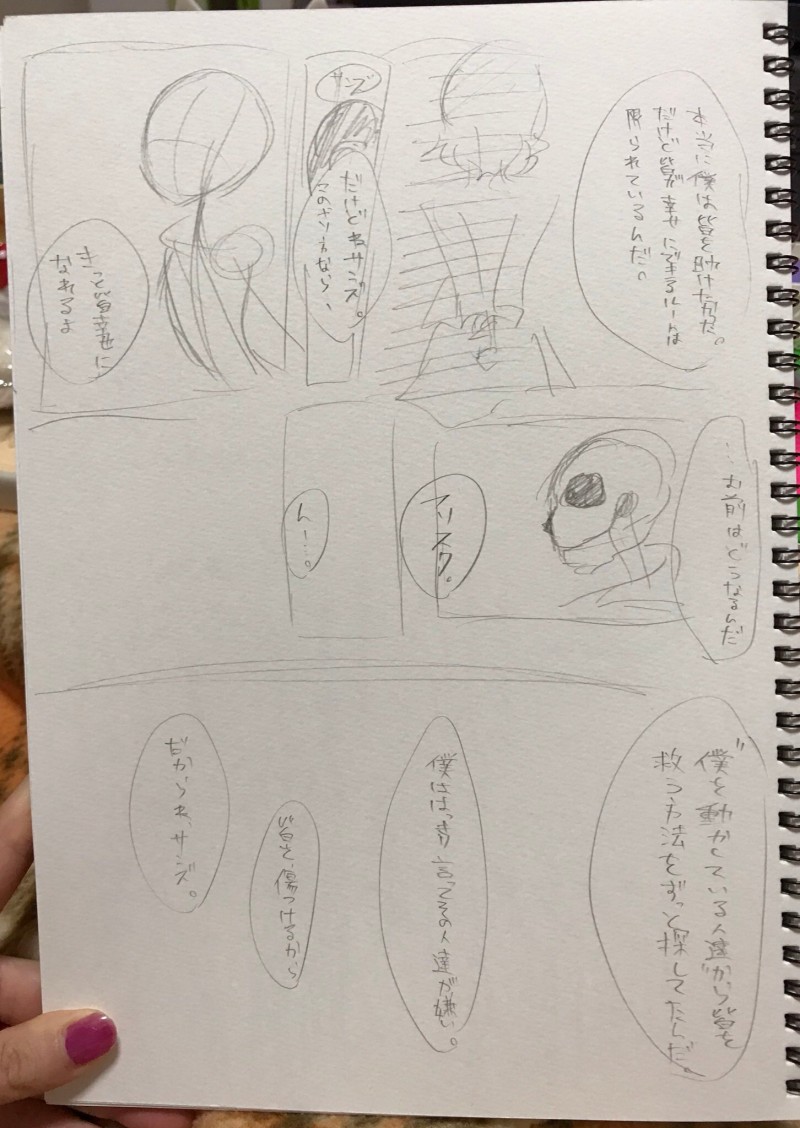 本当に僕は皆を助けたかった。
だけど皆が幸せにできるルートは
限られているんだ。
サンズ
だけどねサンズ。
このさい言うなら、
きっと皆幸せに
なれるよ
…お前はどうなるんだ
フリスク。
んー…。
"僕を動かしている人達"から皆を
救う方法をずっと探してたんだ。
僕ははっきり言ってその人達が嫌い。
皆を、傷つけるから
だからね、サンズ。